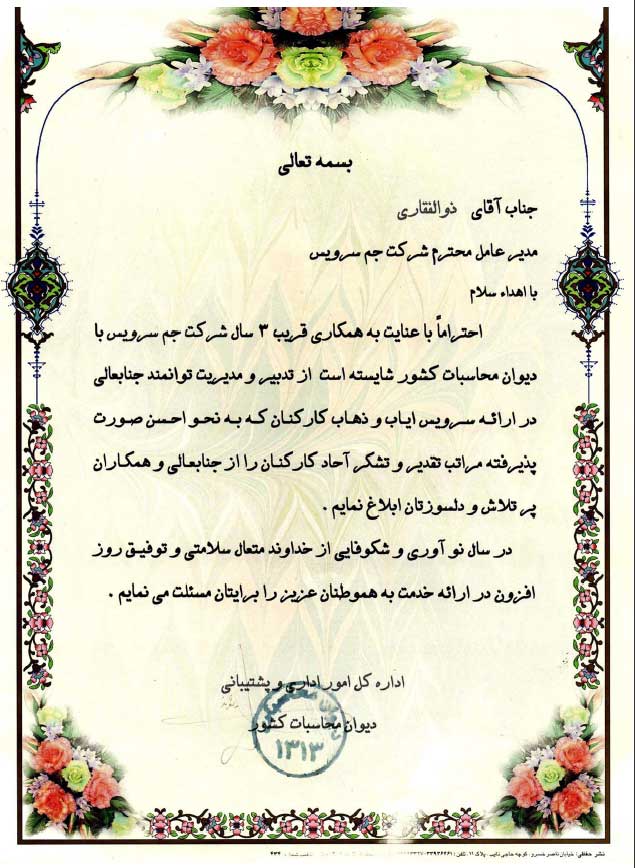 بسمه تعالی
جناب آقای ذوالفقاری
مدیر عامل محترم شرکت جم سرویس
با اهداء سلام
احتراماً با عنایت به همکاری قریب ۳ سال شرکت جم سرویس با
دیوان محاسبات کشور شایسته است از تدبیر و مدیریت توانمند جنابعالی
در ارائه سرویس ایاب و ذهاب کارکنان که به نحو احسن صورت
پذیرفته مراتب تقدیر و تشکر آحاد کارکنان را از جنابعالی و همکاران
پر تلاش و دلسوزتان ابلاغ نمایم .
در سال نو آوری و شکوفایی از خداوند متعال سلامتی و توفیق روز
افزون در ارائه خدمت به هموطنان عزیز را برایتان مسئلت می نمایم .
اداره کل امور اداری و پشتیبانی
دیوان محاسبات کشور
۱۳۱۳
نشر حقیقی: خیابان ناصر خسرو - کوچه حاجی نایب - پلاک ۱۱ - تلفن: